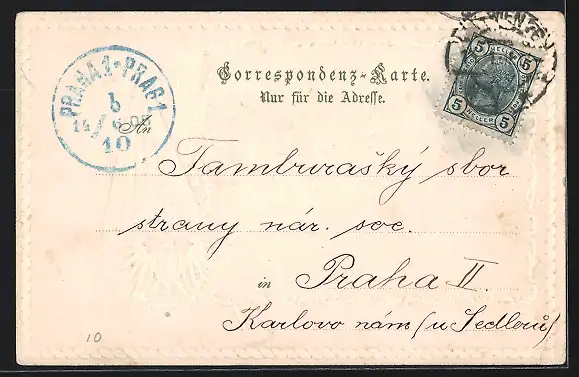 PRAHA 1 · PRAG 1
b
10
Correspondenz-Karte.
Nur für die Adresse.
5 HELLER 5
5 HELLER 5
An
Tamburašký sbor
strany nár. soc.
in Praha II
Karlovo nám (u Sedlerů)
10